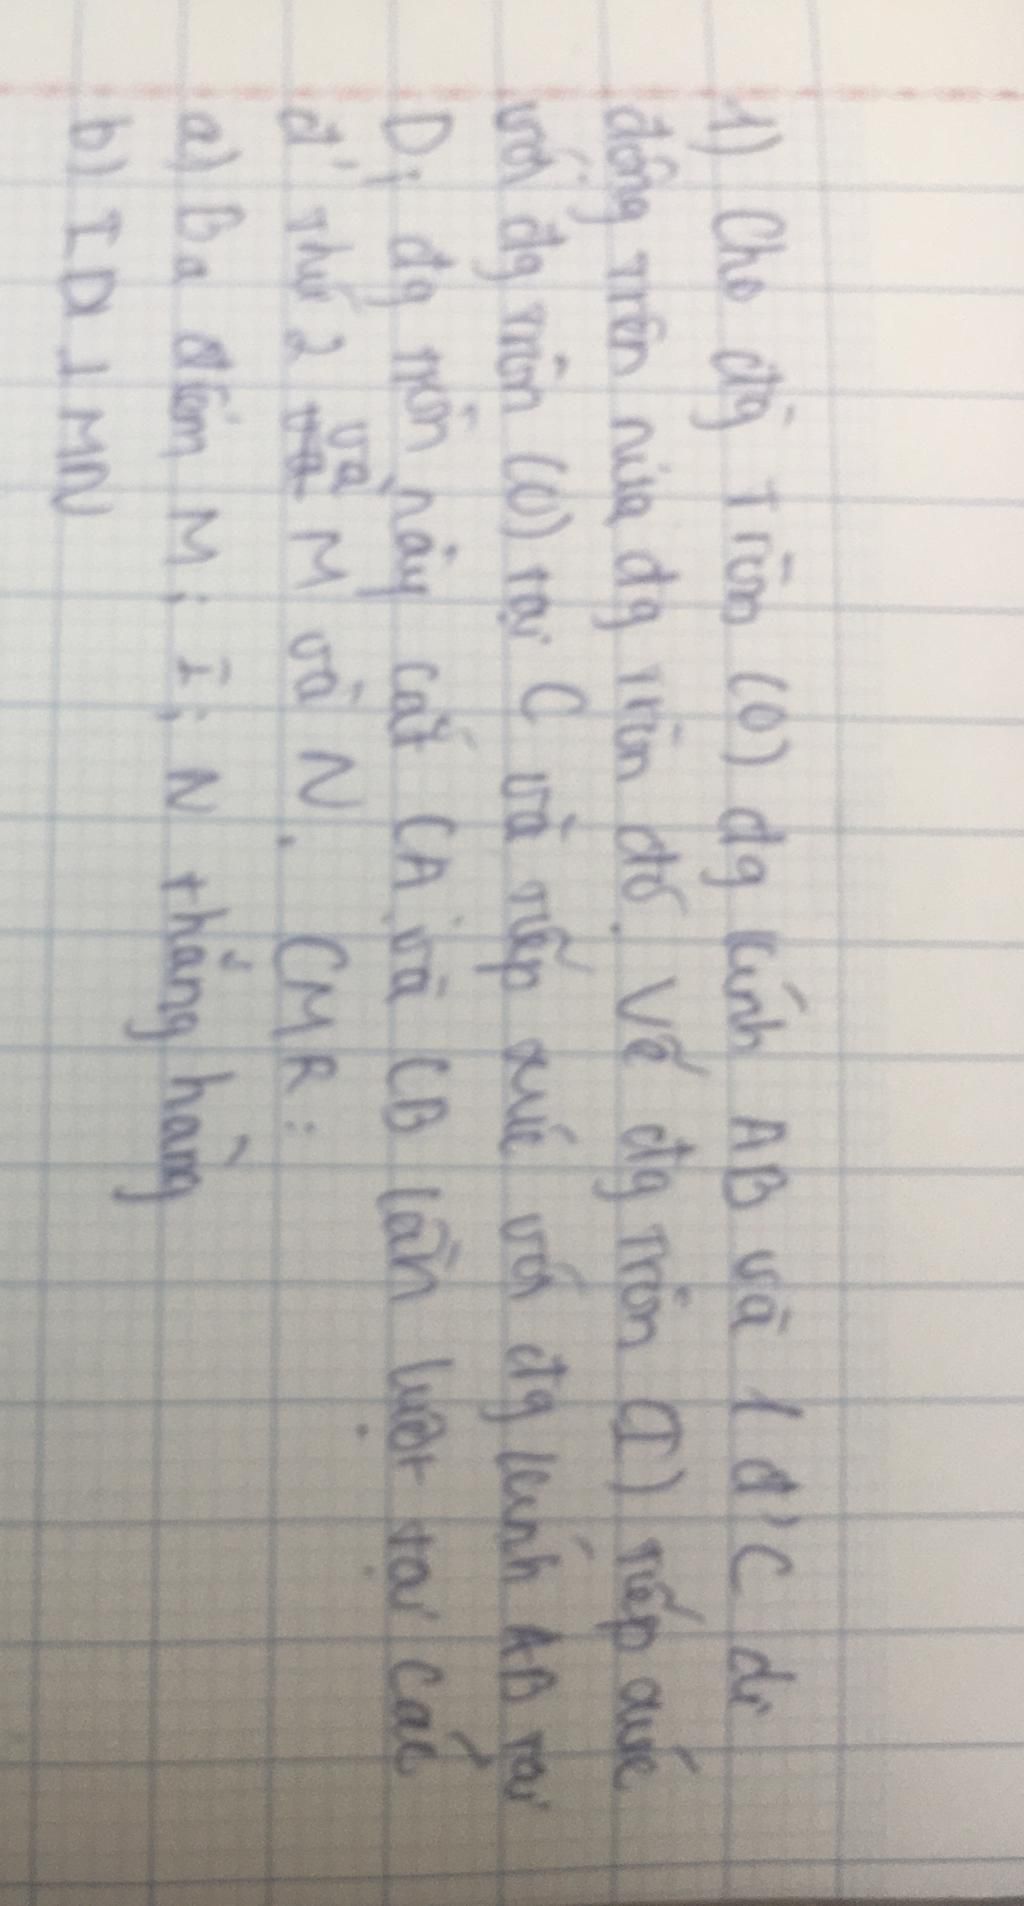 1) Cho đg Tròn (O) đg kính AB và 1 đ' C di
động trên nửa đg tròn đó. Vẽ đg tròn (I) tiếp xúc
với đg tròn (O) tại C và tiếp xúc với đg kính AB tại
D; đg tròn này cắt CA và CB lần lượt tại các
đ' thứ 2 và M và N. CMR:
a) Ba điểm M; I; N thẳng hàng
b) ID ⊥ MN